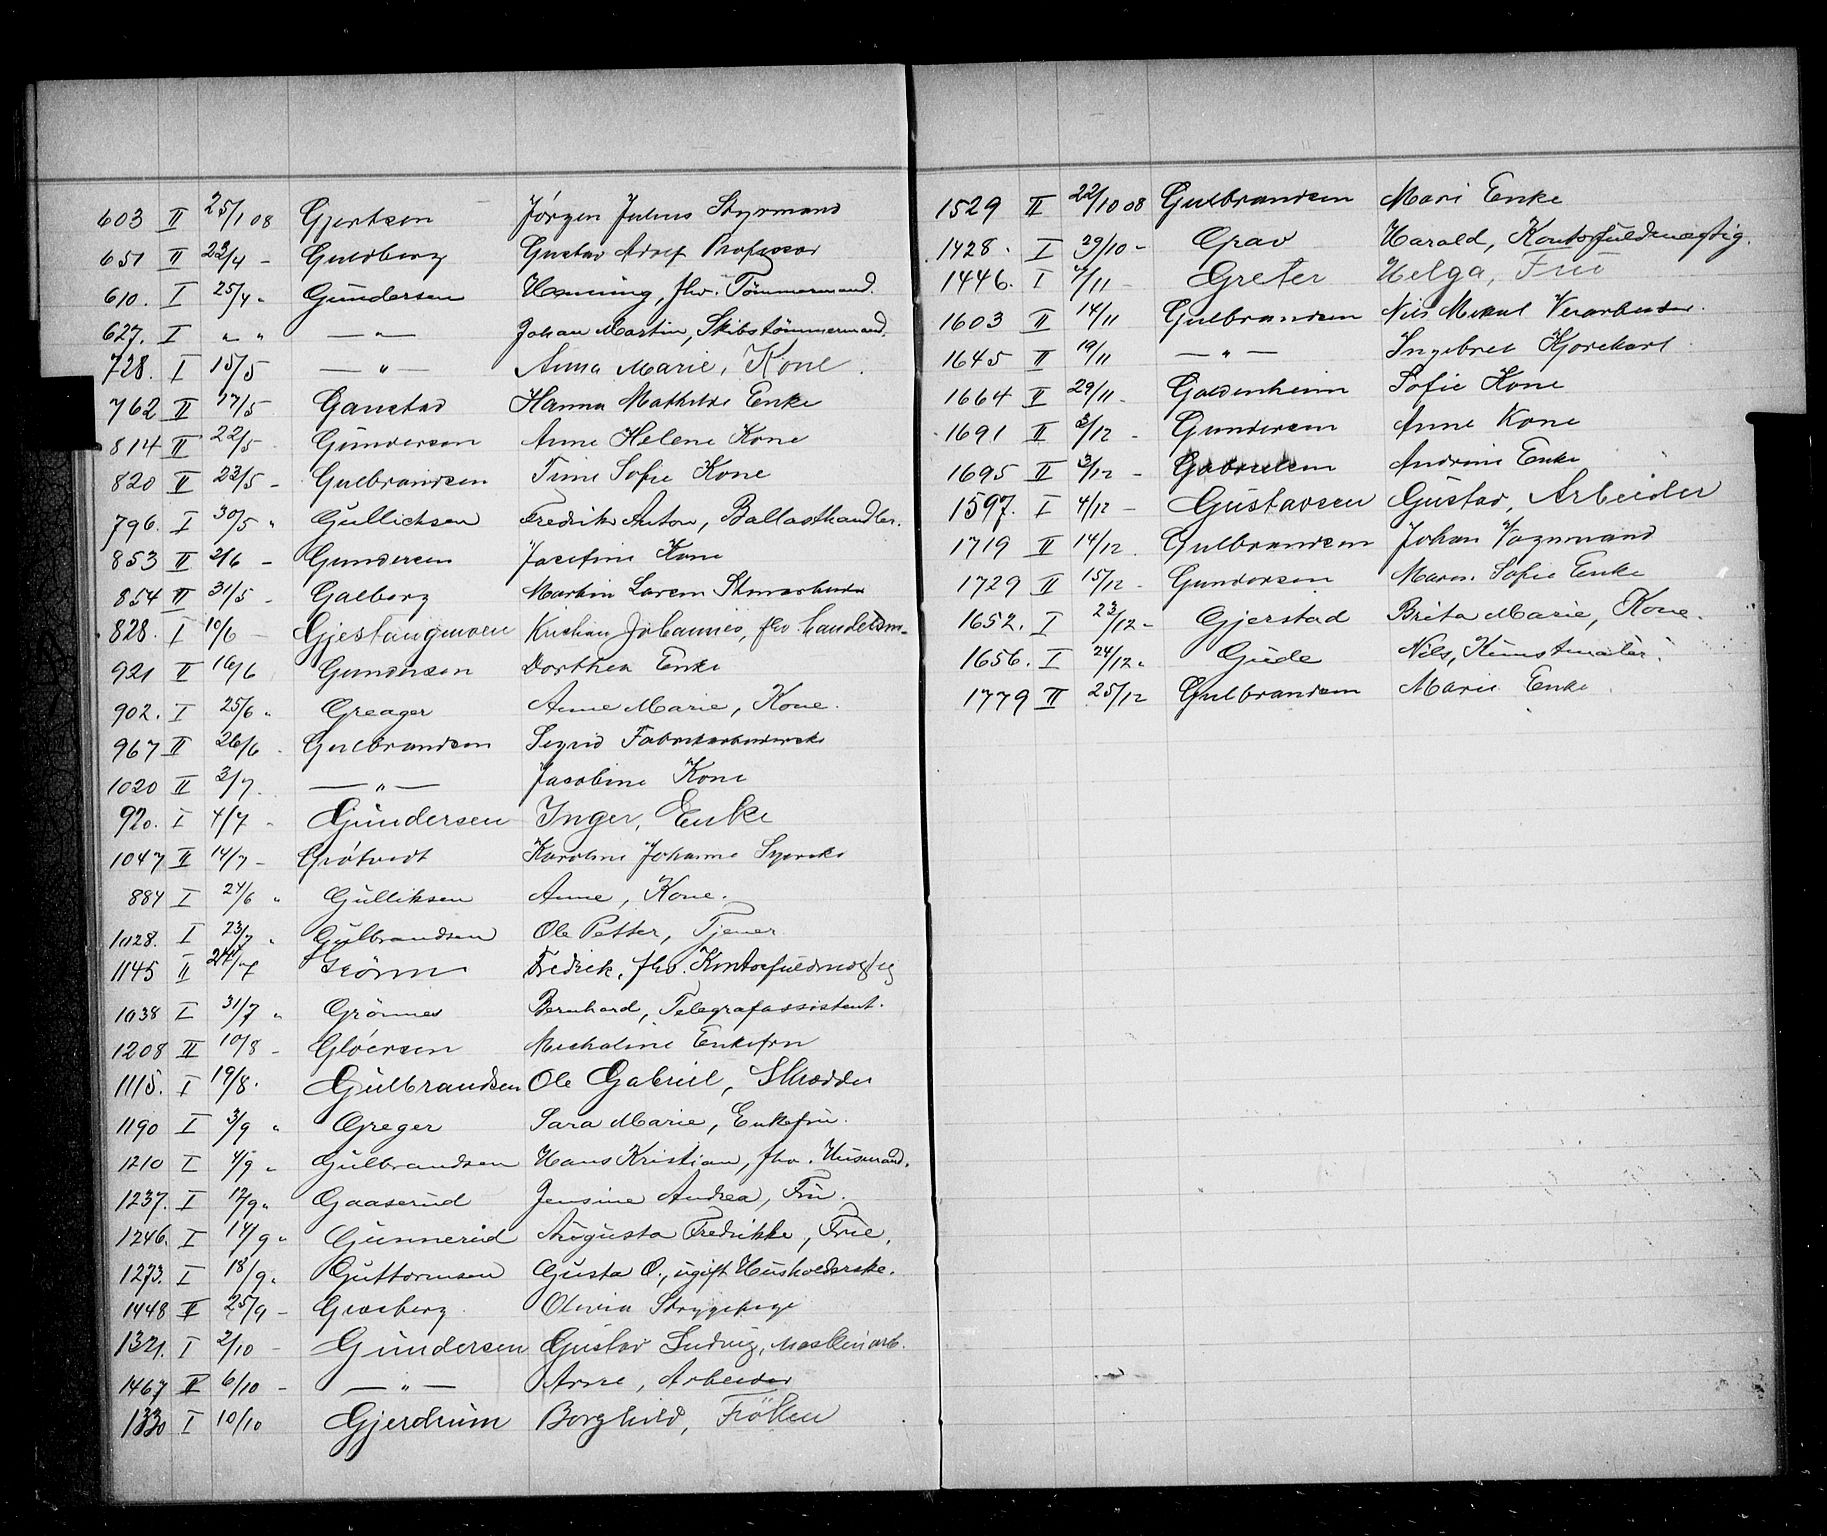 603 II 25/1 08 Gjertsen Jørgen Julius Styrmand
651 II 23/4 - Guldberg Gustav Adolf Professor
610. I 25/4 " Gundersen Henning, fhv. Tømmermand.
627. I " " — " — Johan Martin, Skibstømmermand.
728. I 15/5 — " — Anna Marie, Kone.
762 II 17/5 Ganstad Hanna Mathilde Enke
814 II 22/5 Gundersen Anne Helene Kone
820 II 23/5 - Gulbrandsen Sofie Kone
796. I 30/5 " Gullichsen Fredrik Anton, Ballasthandler.
853 II 2/6 - Gundersen Josefine Kone
854 II 31/5 - Galberg Martin Laren
828. I 10/6 - Gjestangmoen Kristian Johannes, fhv. handelsm.
921 II 16/6 Gundersen Dorthea Enke
902. I 25/6 " Greager Anne Marie, Kone.
967 II 26/6 - Gulbrandsen Sigrid Fabrikarbeiderske
1020 II 3/7. — " — Jacobine Kone
920. I 4/7 - Gundersen Inger, Enke
1047 II 14/7 - Grøtvedt Karoline Johanne Syerske
884 I 24/6 " Gulliksen Anne, Kone.
1028. I 23/7 " Gulbrandsen Ole Petter, Tjener.
1145 II 24/7 Grönn Fredrik, fhv. Kontorfuldmægtig
1038 I 31/7 " Grönnes Bernhard, Telegrafassistent.
1208 II 10/8 - Gløersen Michaline Enkefru
1115. I 19/8. Gulbrandsen Ole Gabriel, Skrædder
1190 I 3/9 " Greger Sara Marie, Enkefru.
1210 I 4/9 " Gulbrandsen Hans Kristian, fhv. Husmand.
1237. I 12/9 " Gaaserud Jensine Andrea, Fru.
1246. I 14/9 " Gunnerud Augusta Fredrikke, Frue.
1273. I 18/9 " Guttormsen Gusta O., ugift Husholderske.
1448 II 25/9 - Graaberg Olivia Strygepige
1321. I 2/10 - Gundersen Gustav Ludvig, Maskinarb.
1467 II 6/10 - — " — Arne, Arbeider
1330 I 10/10 Gjerdrum Borghild, Fröken
1529 II 22/10 08 Gulbrandsen Mari Enke
1428. I 29/10 - Grav Harald, Kontorfuldmægtig.
1446. I 7/11 - Greter Helga, Frue
1603 II 14/11 Gulbrandsen Nils Mikal Verarbeider.
1645 II 19/11 — " — Ingebret Kjørekarl.
1664 II 29/11 - Goldenheim Sofie Kone
1691 II 3/12 - Gundersen Anne Kone
1695 II 3/12 - Gabrielsen Andrine Enke
1597. I 4/12 - Gustavsen Gustav, Arbeider
1719 II 14/12. Gulbrandsen Johan Vognmand
1729 II 15/12 - Gundersen Maren Sofie Enke
1652. I 23/12 - Gjerstad Brita Marie, Kone.
1656. I 24/12 " Gude Nils, Kunstmaler.
1779 II 25/12 Gulbrandsen Marie Enke